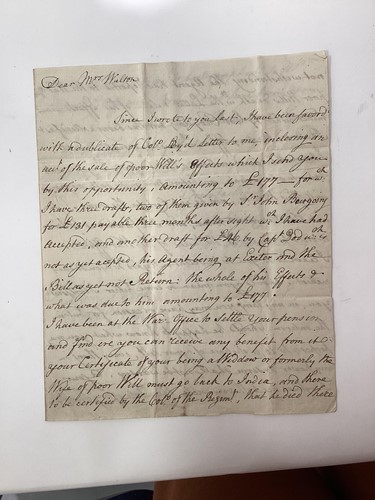 Dear Mrs Walton
Since I wrote to you last, I have been favord
with a dublicate of Colo. Letter to me, inclosing an
acct. of the sale of poor Will's Effects which I send you
by this opportunity, amounting to £177 — for wch.
I have three drafts, two of them given by Sr. John Burgoyne
for £131 payable three months after sight wch. I have had
accepted, and another draft for £46 by Capt. wch. is
not as yet accepted, his Agent being at Exeter and the
Bill as yet not Return: the whole of his Effects &
what was due to him amounting to £177.
I have been at the War Office to Settle your pension
and find ere you can receive any benefit from it
your Certificate of your being a Widow or formerly the
Wife of poor Will must go back to India, and there
to be certified by the Colo. of the Regimt., that he died there